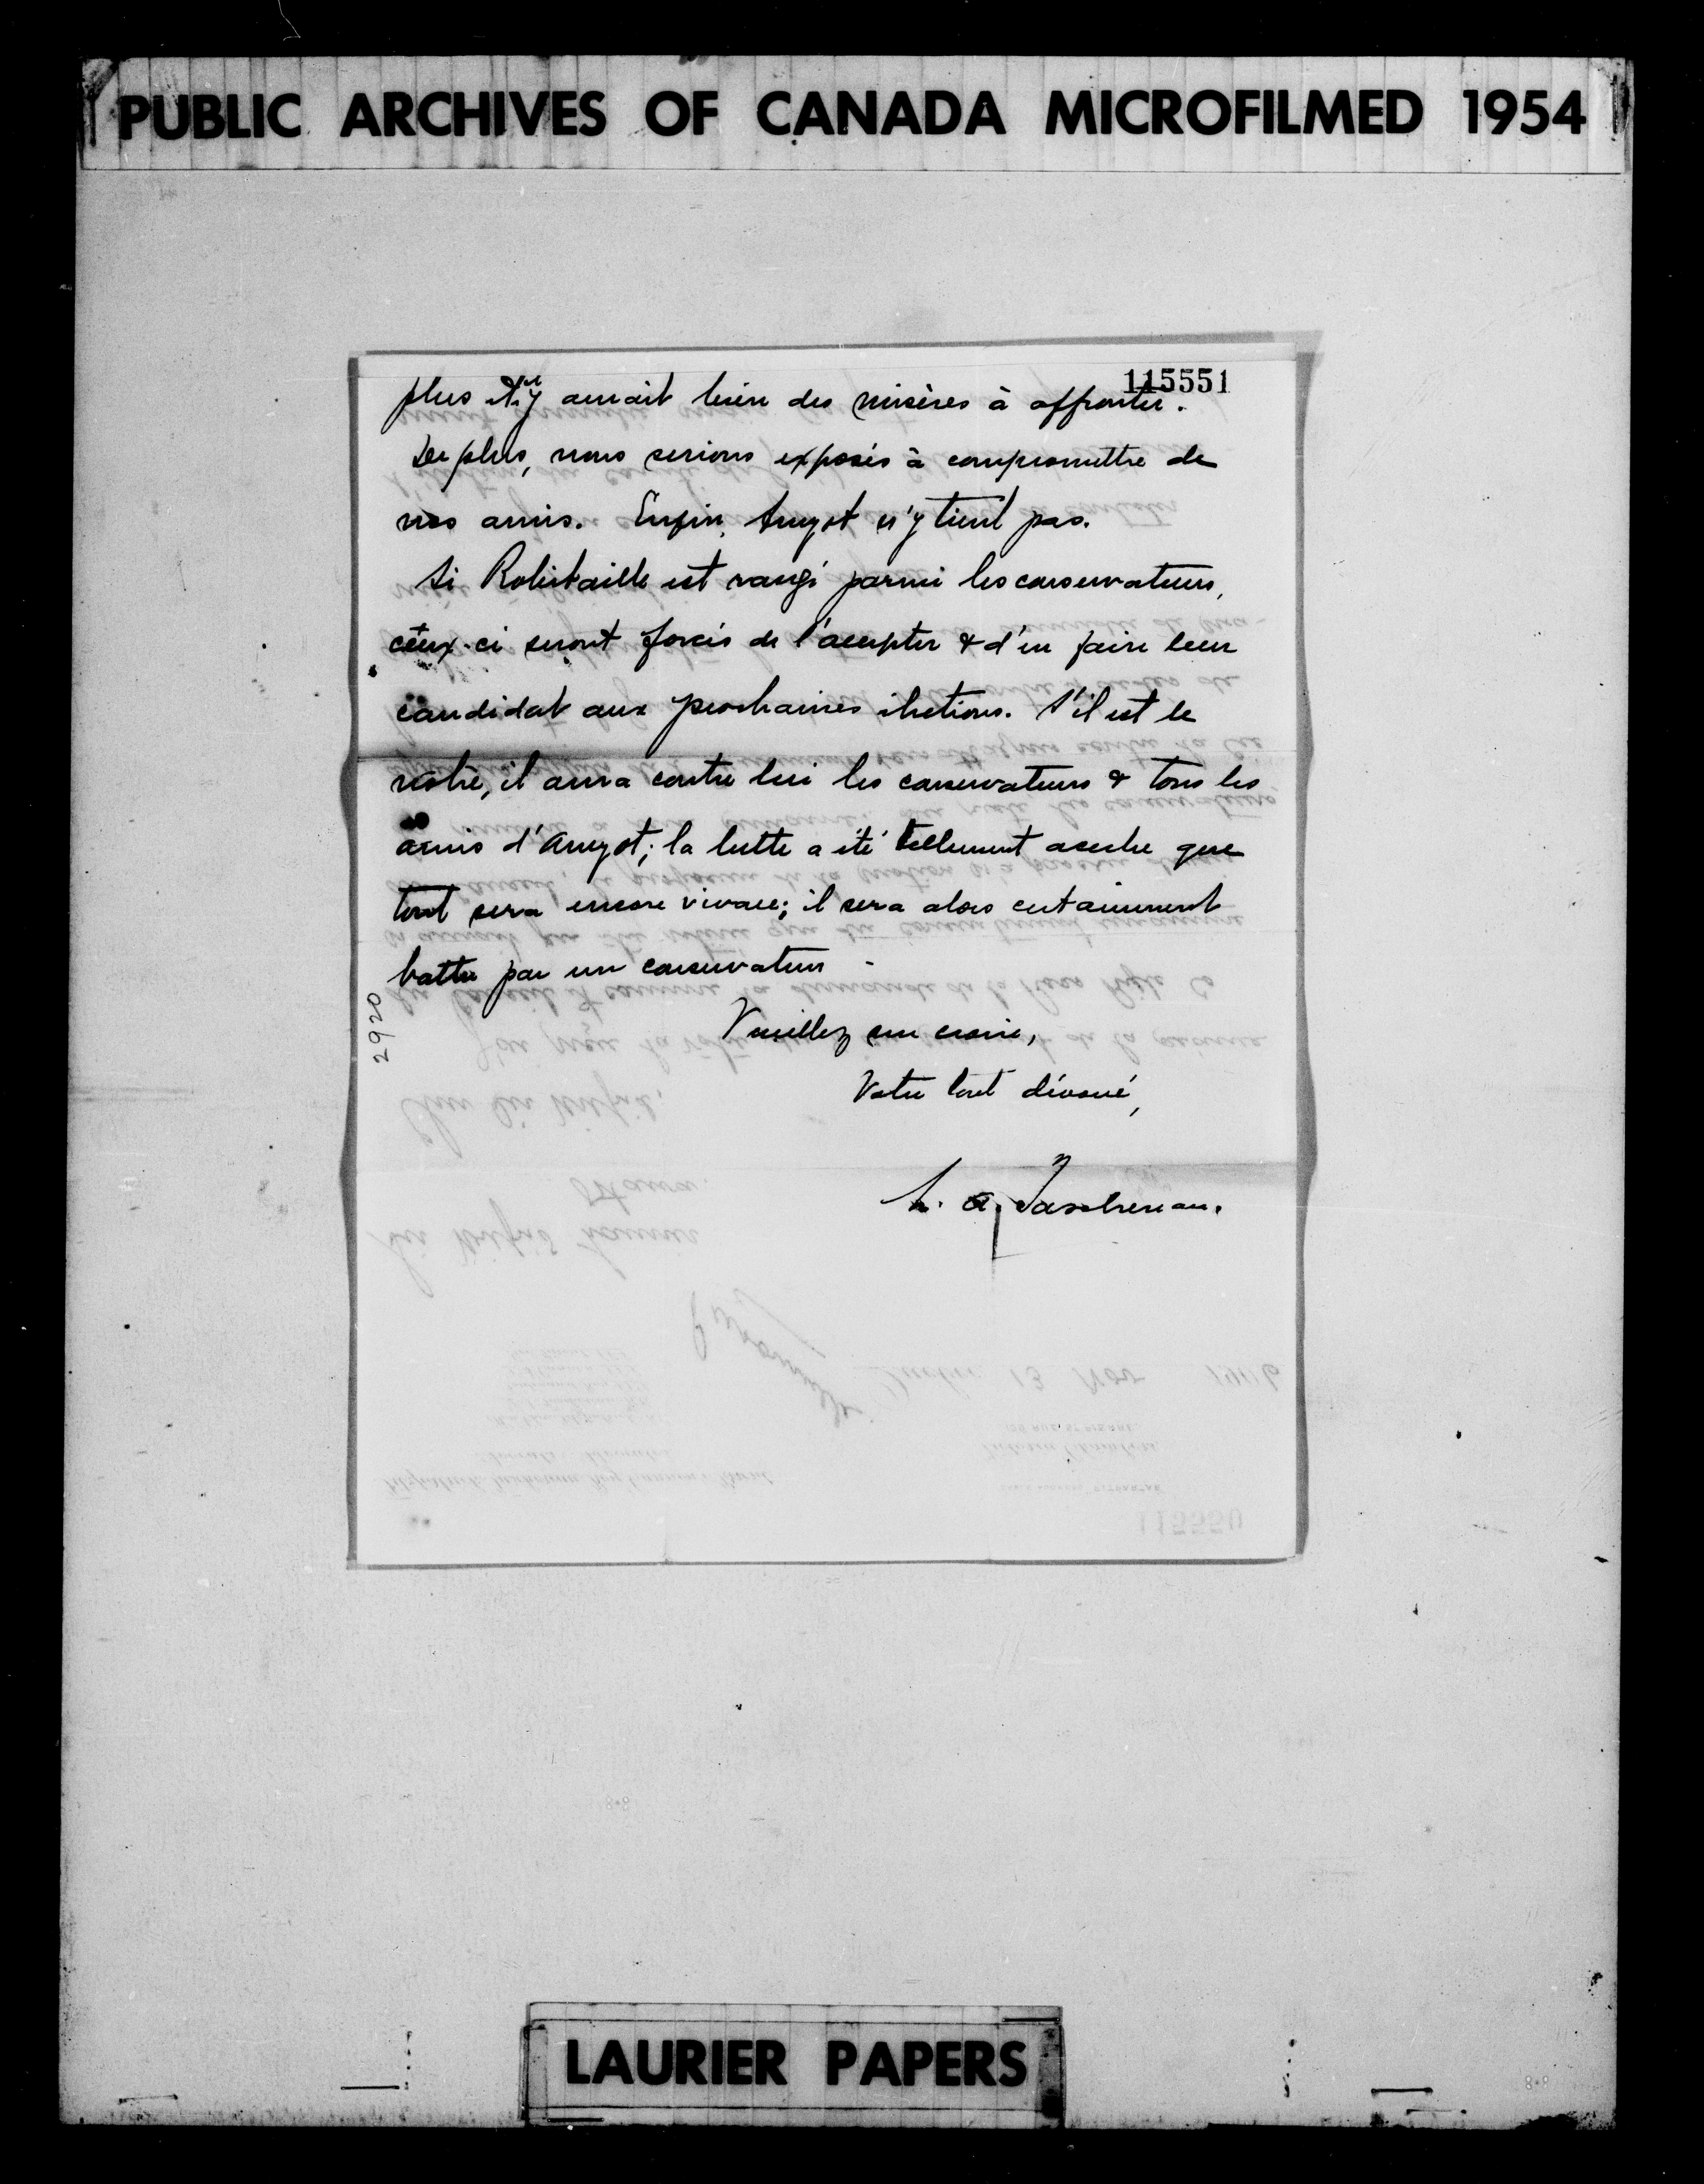 PUBLIC ARCHIVES OF CANADA MICROFILMED 1954
115551
plus il y aurait bien des misères à affronter.
De plus, nous serions exposés à compromettre de
nos amis. Enfin, Amyot n'y tient pas.
Si Robitaille est rangé parmi les conservateurs,
ceux-ci seront forcés de l'accepter & d'en faire leur
candidat aux prochaines élections. S'il est le
nôtre, il aura contre lui les conservateurs & tous les
amis d'Amyot; la lutte a été tellement acerbe que
tout sera encore vivace; il sera alors certainement
battu par un conservateur -
2920
Veuillez me croire,
Votre tout dévoué,
L. A. Taschereau.
LAURIER PAPERS